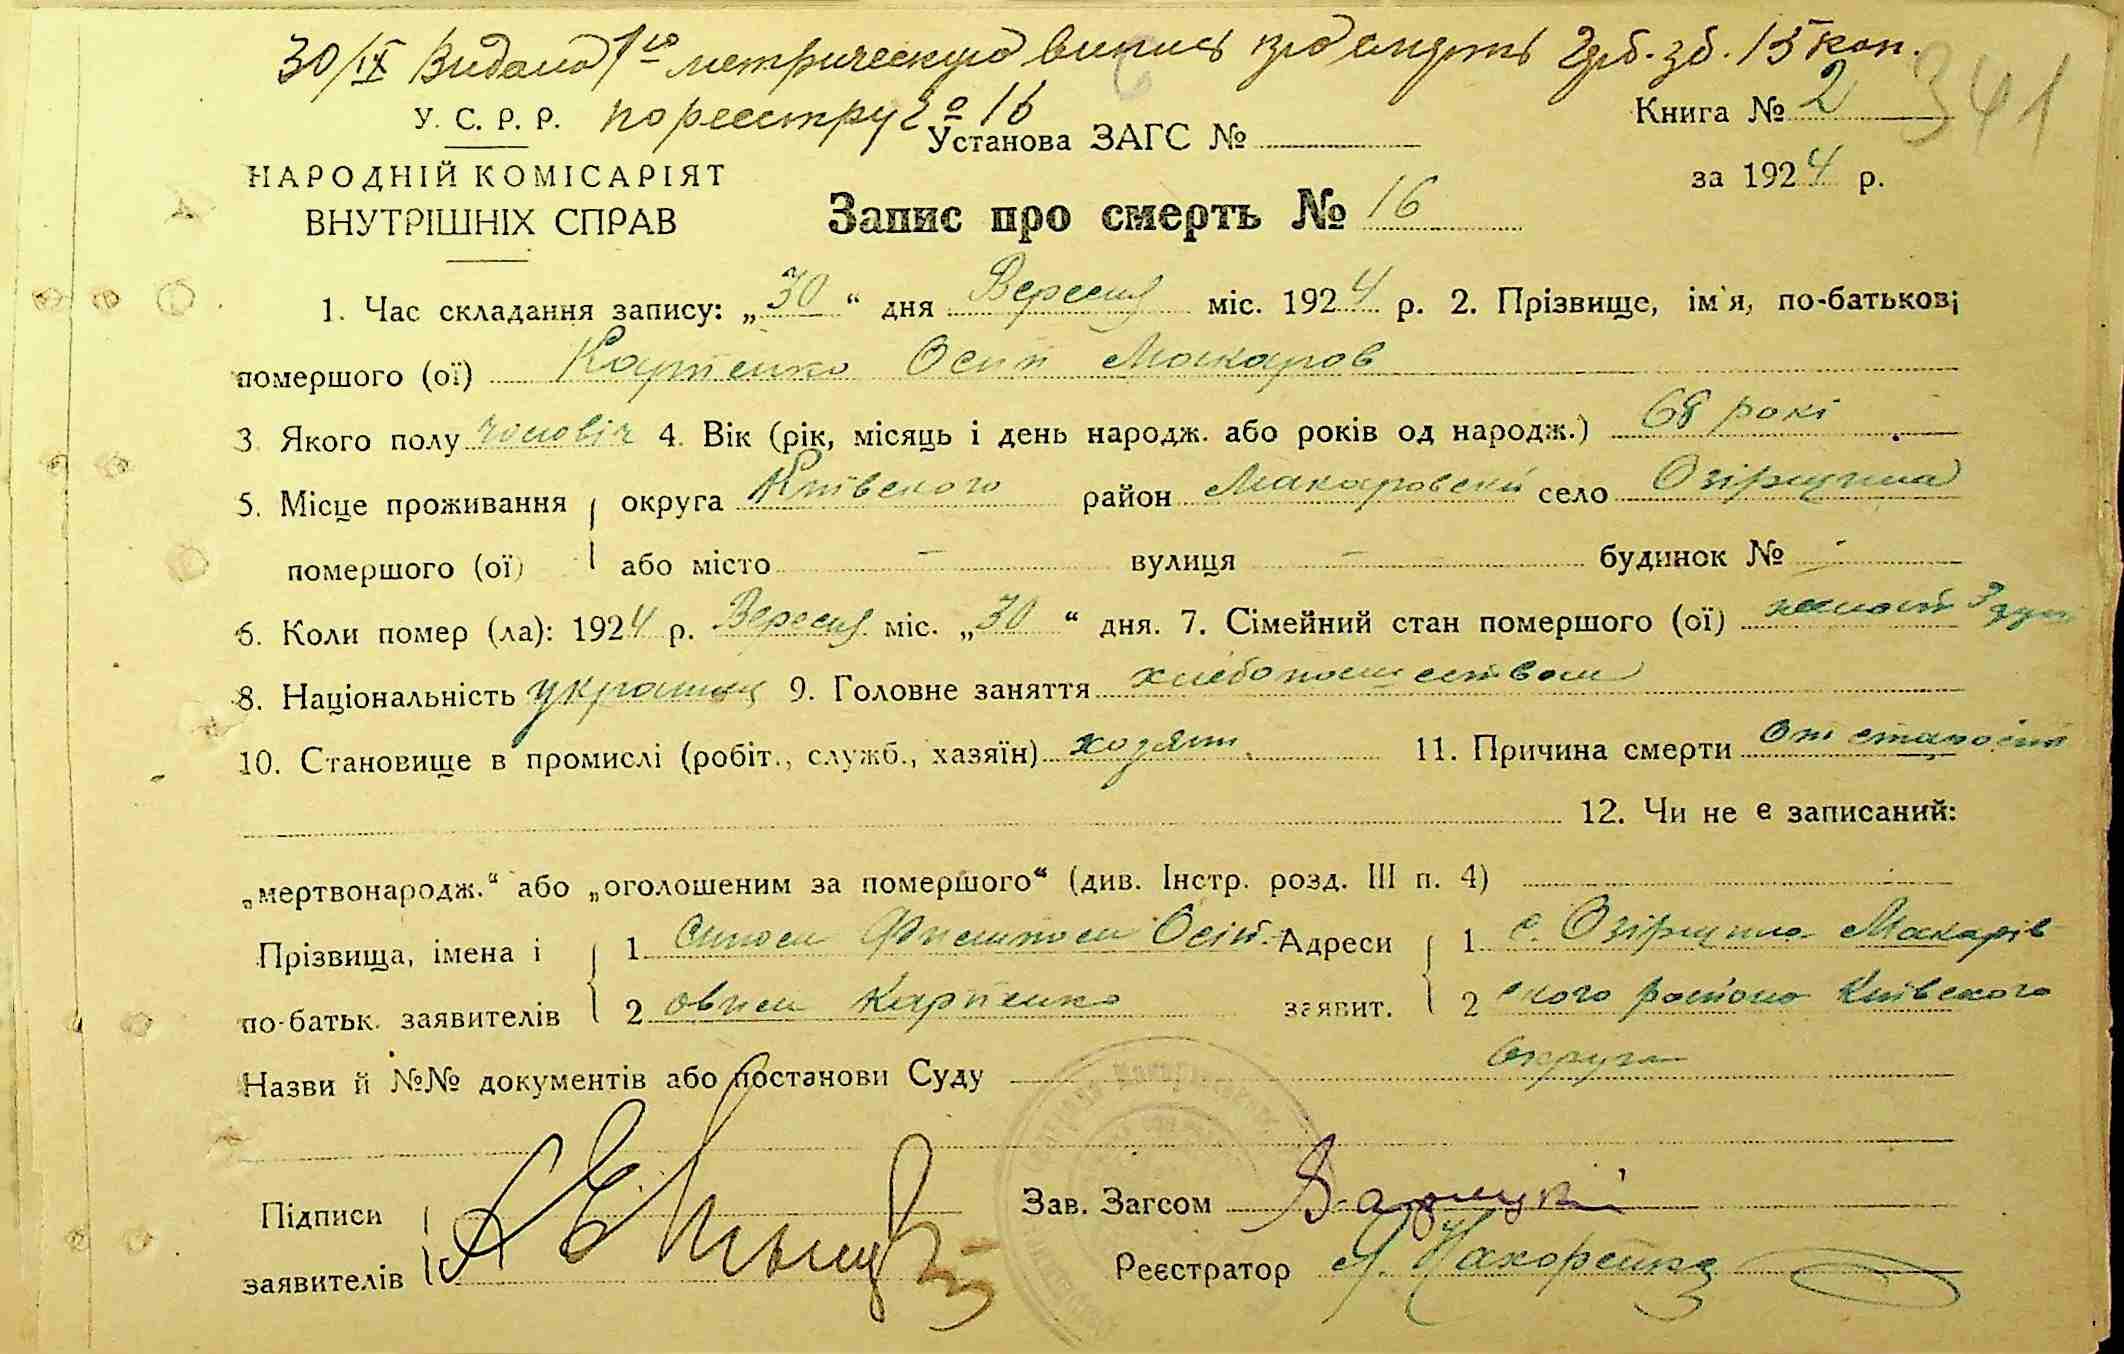 30/IX Видано 1ую метрическую випись про смерть 2 рб. зб. 15 коп.
341
У. С. Р. Р. по реестру № 16
Установа ЗАГС №
Книга № 2
НАРОДНІЙ КОМІСАРІЯТ
ВНУТРІШНІХ СПРАВ
за 1924 р.
Запис про смерть № 16
1. Час складання запису: „30“ дня Вересня міс. 1924 р. 2. Прізвище, ім'я, по-батькові
помершого (ої) Карпенко Осип Макаров
3. Якого полу чоловіч 4. Вік (рік, місяць і день народж. або років од народж.) 68 рокі
5. Місце проживання округа Київского район Макаровский село Озірщина
помершого (ої) або місто – вулиця – будинок № –
6. Коли помер (ла): 1924 р. Вересня міс. „30“ дня. 7. Сімейний стан помершого (ої)
8. Національність украинец 9. Головне заняття хлебопашеством
10. Становище в промислі (робіт., служб., хазяїн) хозяин 11. Причина смерти От старости
12. Чи не є записаний:
„мертвонародж.“ або „оголошеним за помершого“ (див. Інстр. розд. III п. 4)
Прізвища, імена і 1 Сином Филипом Осіп- Адреси 1 с. Озірщина Макарів
по-батьк. заявителів 2 овим Карпенко заявит. 2 ского района Київского
округа
Назви й №№ документів або постанови Суду
Підписи
Зав. Загсом
заявителів
Реєстратор